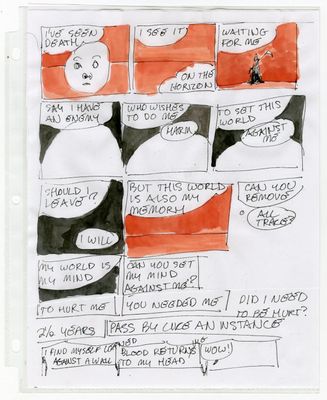 I'VE SEEN
DEATH
I SEE IT
ON THE
HORIZON
WAITING
FOR ME
SAY I HAVE
AN ENEMY
WHO WISHES
TO DO ME
HARM
TO SET THIS
WORLD
AGAINST
ME
SHOULD I
LEAVE?
I WILL
BUT THIS WORLD
IS ALSO MY
MEMORY
CAN YOU
REMOVE
ALL
TRACE?
MY WORLD IS
MY MIND
CAN YOU SET
MY MIND
AGAINST ME?
TO HURT ME
YOU NEEDED ME
DID I NEED
TO BE HURT?
2½ YEARS
PASS BY LIKE AN INSTANCE
I FIND MYSELF
AGAINST A WALL
BLOOD RETURNS
TO MY HEAD
WOW!!